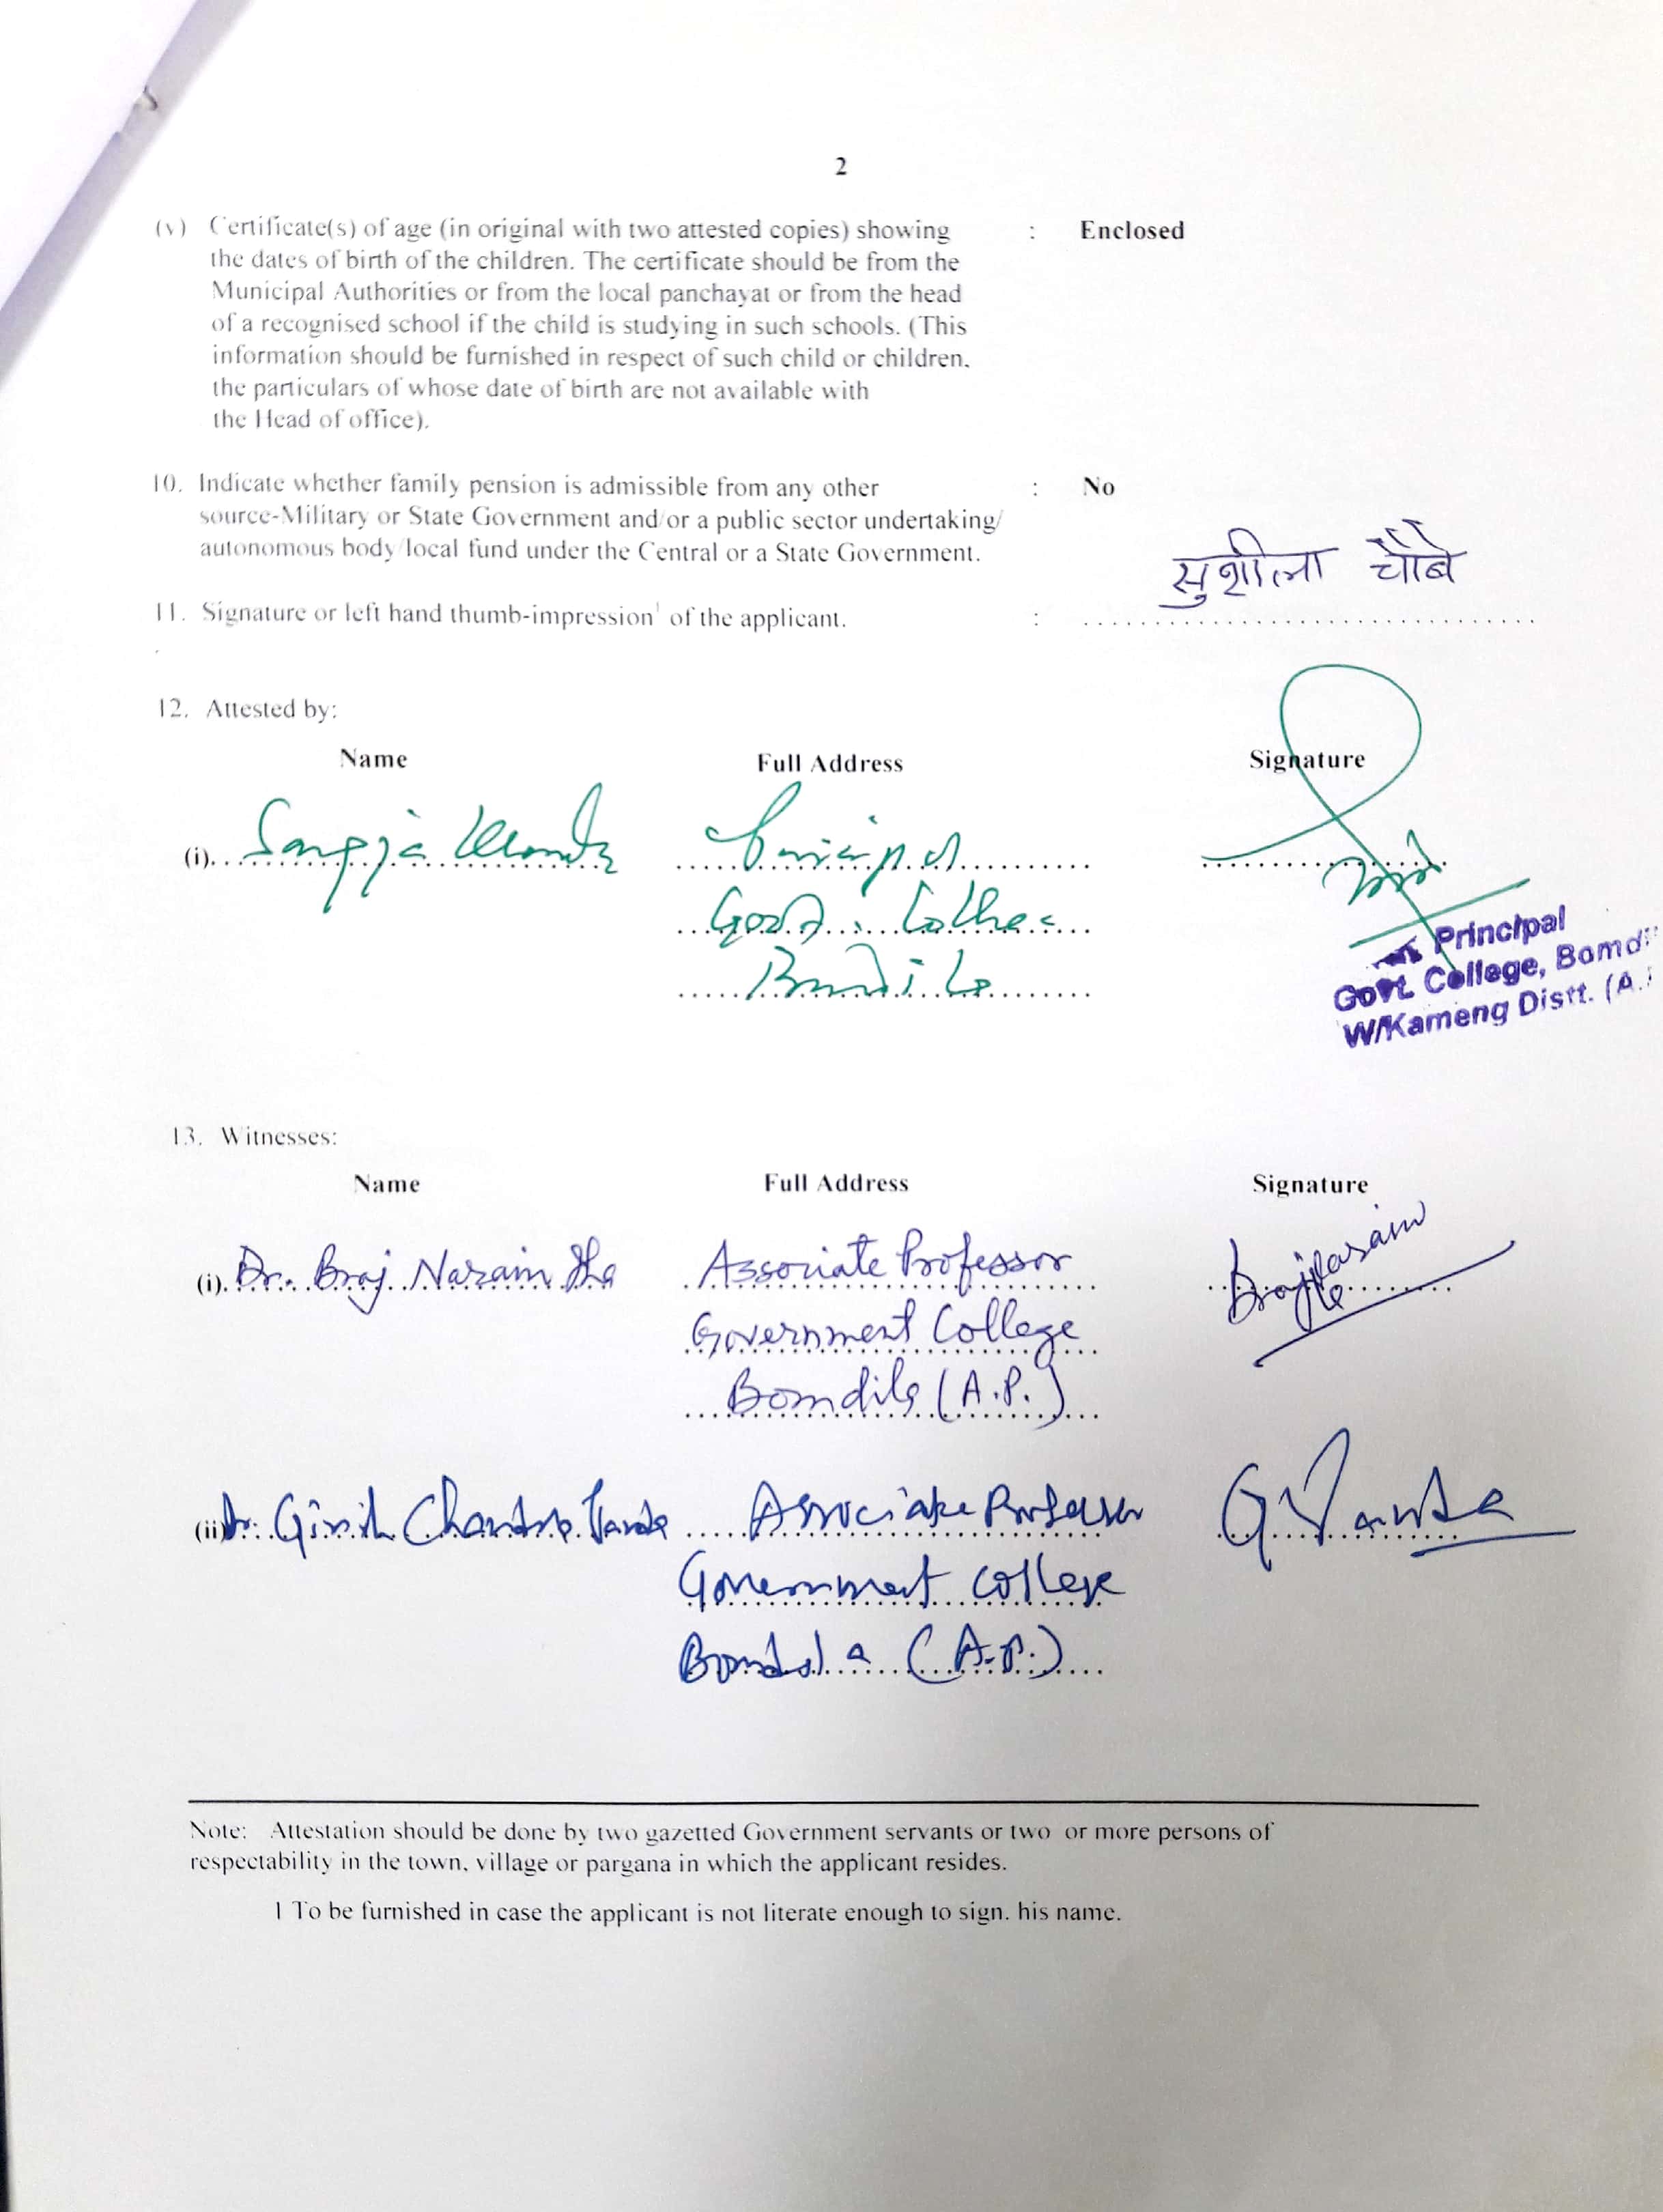 2
(v) Certificate(s) of age (in original with two attested copies) showing : Enclosed
the dates of birth of the children. The certificate should be from the
Municipal Authorities or from the local panchayat or from the head
of a recognised school if the child is studying in such schools. (This
information should be furnished in respect of such child or children.
the particulars of whose date of birth are not available with
the Head of office).
10. Indicate whether family pension is admissible from any other : No
source-Military or State Government and/or a public sector undertaking/
autonomous body/local fund under the Central or a State Government.
सुशीला चौबे
11. Signature or left hand thumb-impression1 of the applicant. :
12. Attested by:
Name Full Address Signature
(i). Principal
Govt. College
Bomdila
Principal
Govt. College, Bomdi
W/Kameng Distt. (A.
13. Witnesses:
Name Full Address Signature
(i). Dr. Braj Narain Jha Associate Professor
Government College
Bomdila (A.P.)
(ii) Dr. Girish Chandra Associate Professor
Government College
Bomdila (A.P.)
Note: Attestation should be done by two gazetted Government servants or two or more persons of
respectability in the town, village or pargana in which the applicant resides.
1 To be furnished in case the applicant is not literate enough to sign. his name.